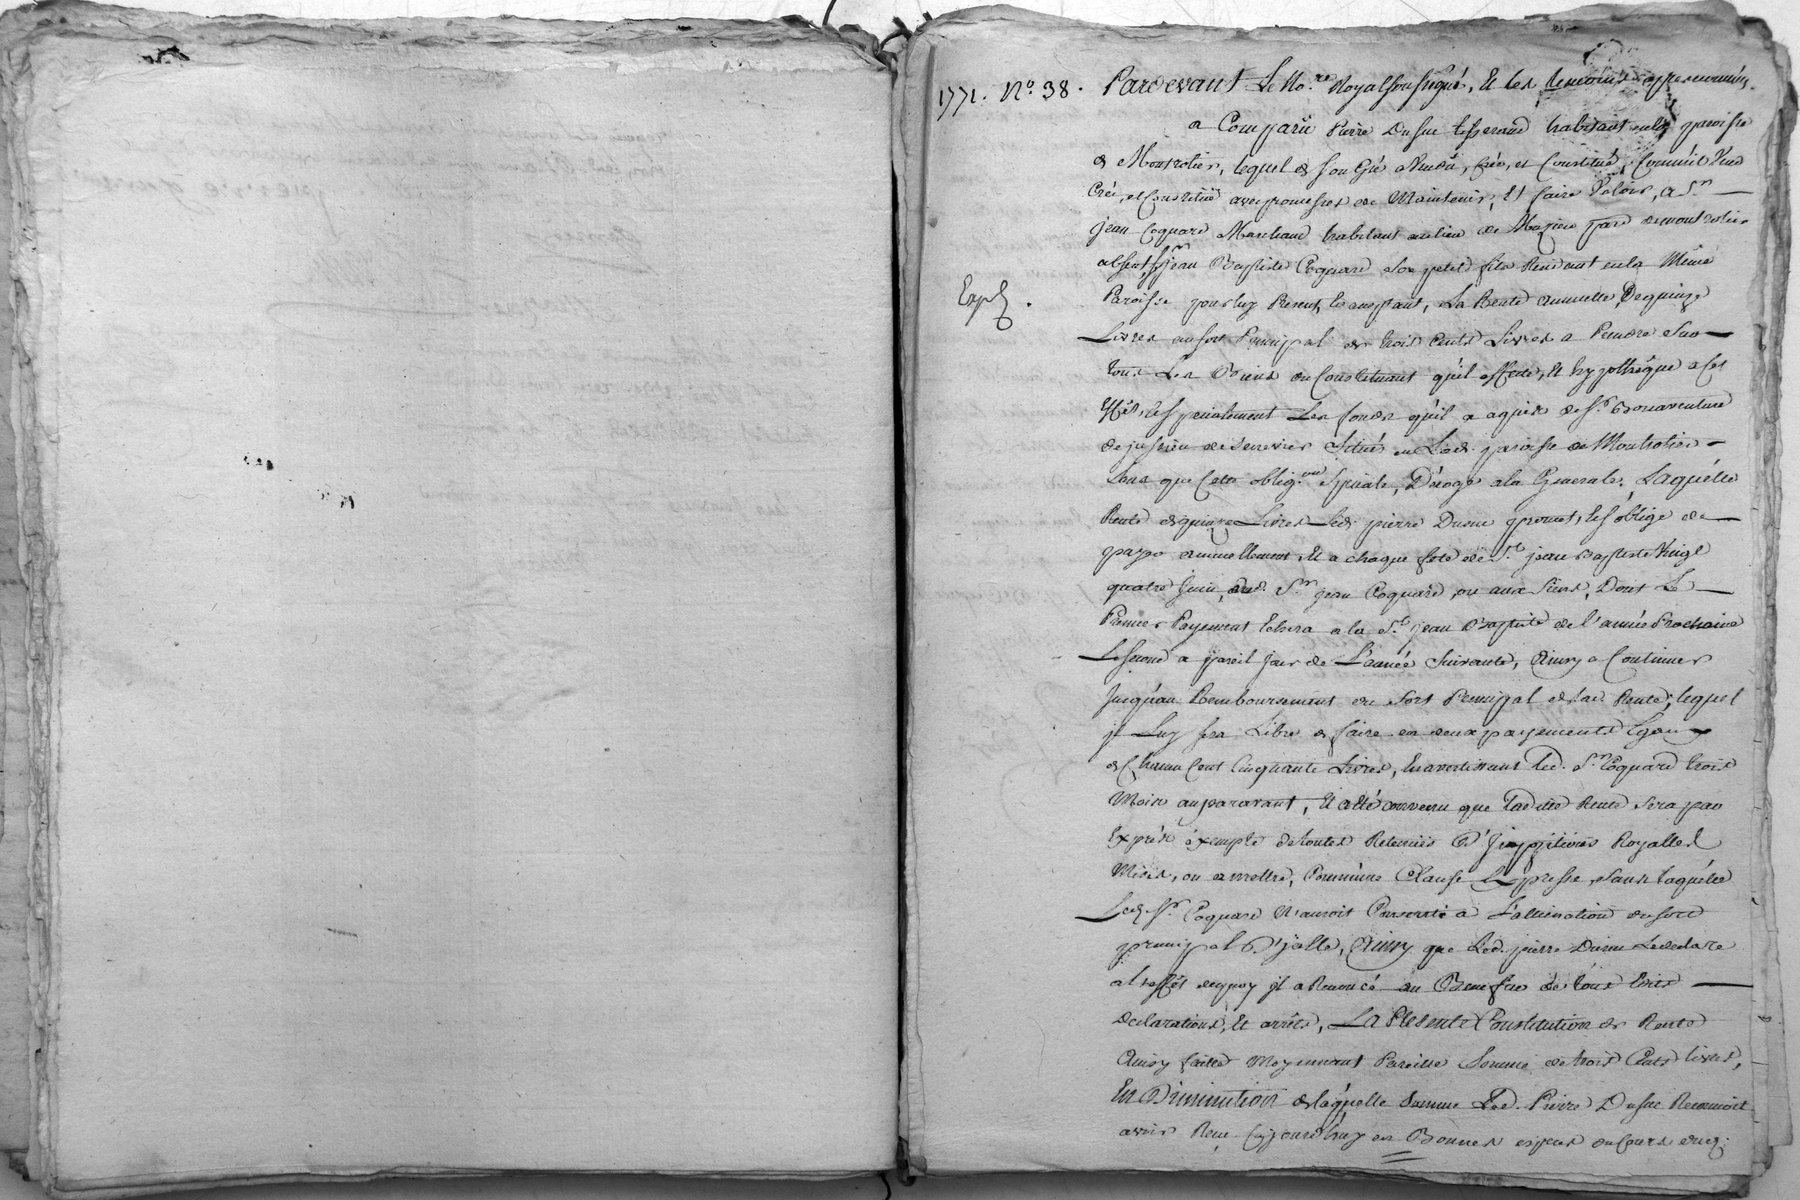 1771. No. 38. Pardevant Le No.re Royal soussigné, Et les temoins appres nommés,
a Comparû Pierre Dusuc tisserand habitant en la paroisse
de Montrotier, lequel de son gré a vendû, Créé, et Constitué, Comme il Vend
Crée, et Constitüe avec promesses de Maintenir, Et faire Valoir, a Sr.
jean Coquard Marchand habitant au lieu de par. de montrotier
absent, Sr. jean Baptiste Coquard son petit fils Residant en la Même
Expé.
Paroisse pour luy Present, Et acceptant, La Rente annuelle De quinze
Livres au sort Principal de trois Cents Livres a Prendre Sur
tous Les Biens du Constituant qu'il affecte, Et hypothéque a cet
Effet, Et specialement Les fonds qu'il a aquis de Sr. Bonaventure
de jussieu de Senevier Situés en Lad. paroisse de Montrotier
sans que Cette oblig.on Speciale, Déroge a la Generale, Laquélle
Rente de quinze Livres Led. pierre Dusuc promet, Et s'oblige de
payer annuellement Et a chaque fete de St. jean Baptiste Vingt
quatre juin, aud. Sr. jean Coquard, ou aux Siens, Dont Le
Premier Payement Echera a la St. jean Baptiste de l'année Prochaine
Le second a pareil jour de L'année Suivante, Ainsy a Continuer
jusqu'au Remboursement du Sort Principal de lad. Rente; lequel
jl Luy sera Libre de faire en deux payements Egaux
de Chacun Cent Cinquante Livres, En avertissant Led. Sr. Coquard trois
Mois auparavant, Et a été convenu que Laditte Rente Sera par
Exprés éxempte de toutes Retenües & Impositions Royalles
Mises, ou a mettre, Comme une Clause Expresse, sans laquélle
Led. Sr. Coquard N'auroit Consenti a L'alienation du sort
principal d'jcelle, Ainsy que Led. pierre Dusuc Le declare
a l'effet dequoy jl a Renoncé au Benefice de tous Edits
declarations, Et arrêts, La Presente Constitution de Rente
Ainsy faitte Moyennant Pareille Somme de trois Cents livres,
En Diminution de laquelle Somme Led. Pierre Dusuc Reconnoit
avoir Reçu Cejourdhuy en Bonnes especes du Cours de ce